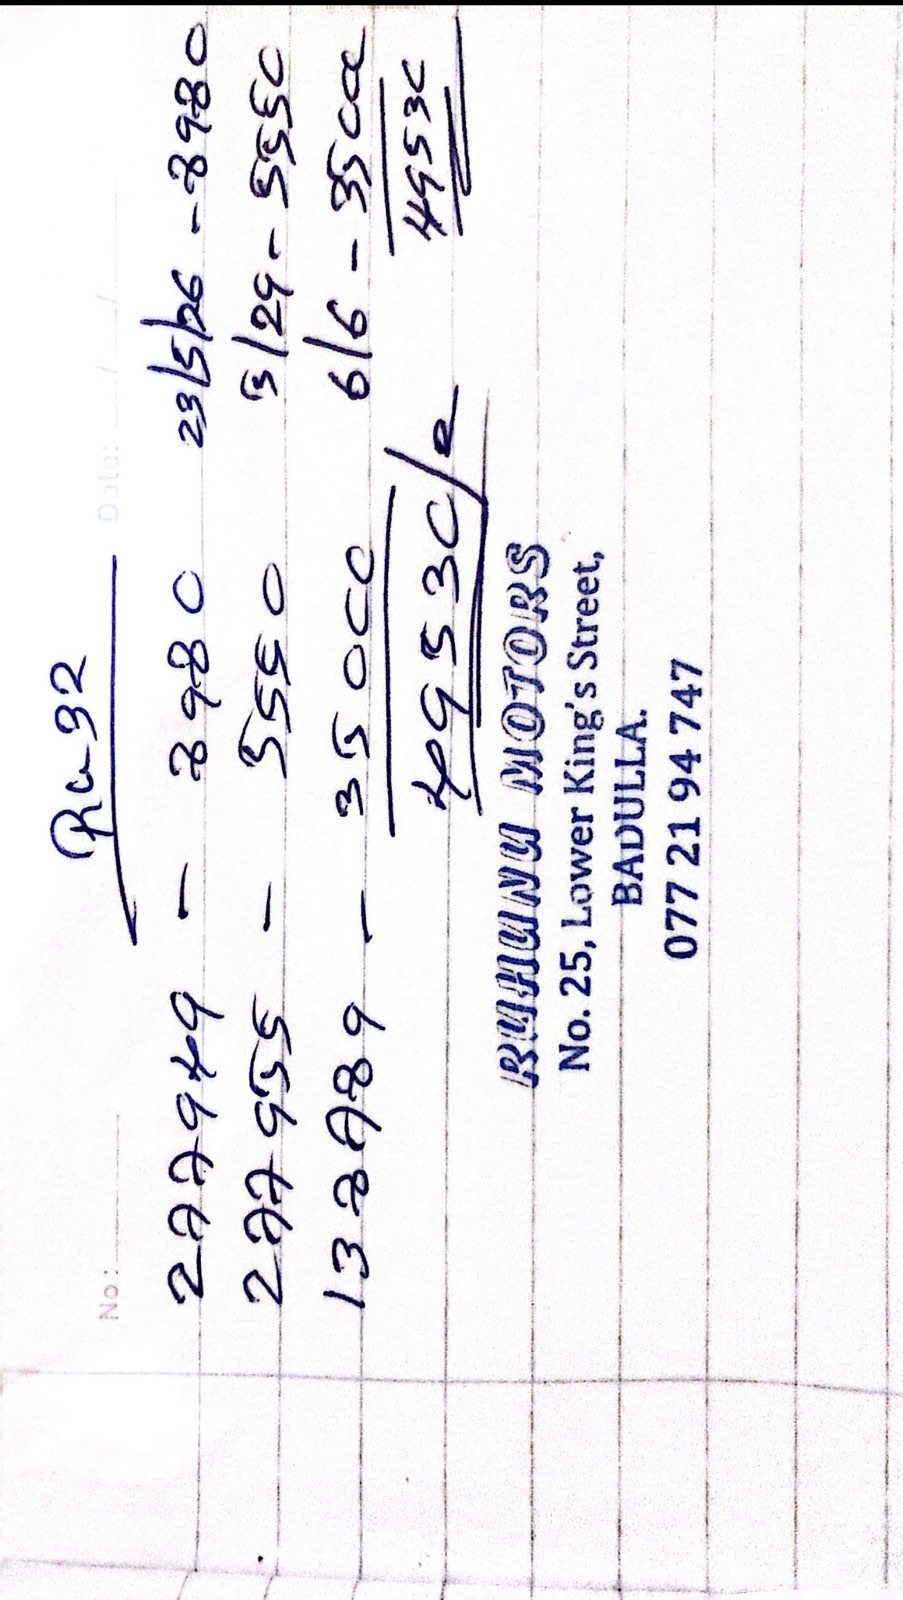 No: Date: / /
227949 - 8980 23/5/26 - 8980
227955 - 5550 5/29 - 5550
138789 - 35000 6/6 - 35000
49530/= 49530
RUHUNU MOTORS
No. 25, Lower King's Street,
BADULLA.
077 21 94 747